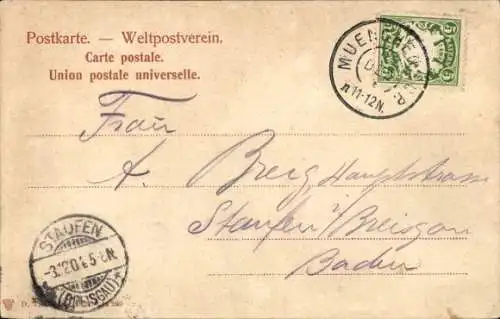 Postkarte. — Weltpostverein.
Carte postale.
Union postale universelle.
MUENCHEN
11-12N.
Frau
A. Breig Hauptstrasse
Staufen i/Breisgau
Baden
STAUFEN
5-8N.
(BREISGAU)